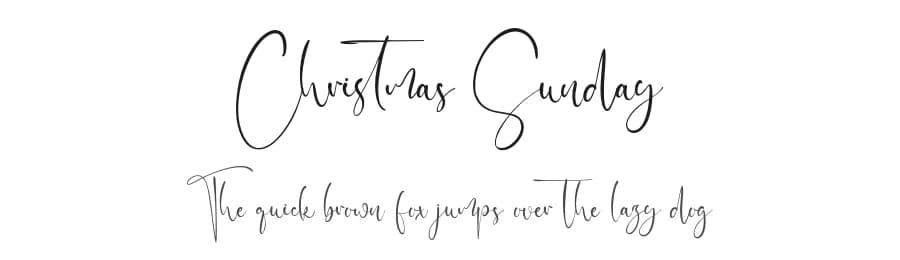 Christmas Sunday
The quick brown fox jumps over the lazy dog